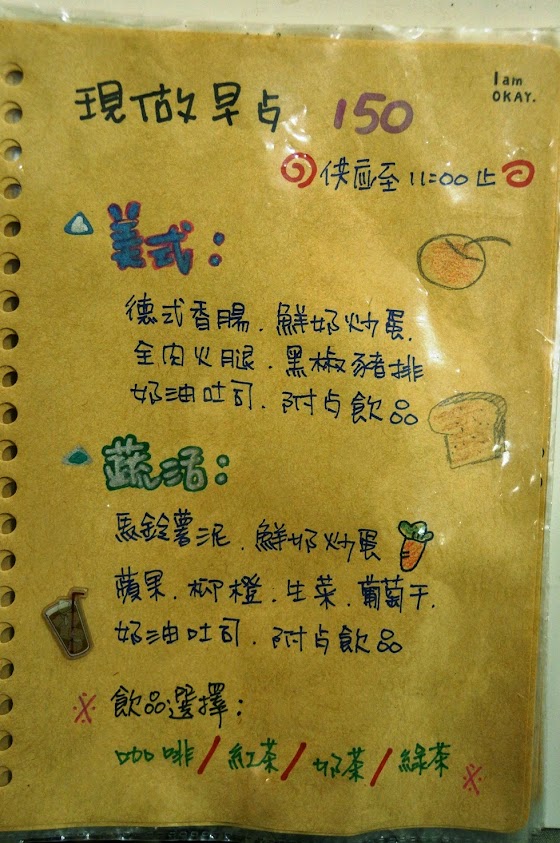 I am
OKAY.
現做早点 150
供应至 11:00 止
美式:
德式香腸.鮮奶炒蛋.
全肉火腿.黑椒豬排
奶油吐司.附点飲品
蔬活:
馬鈴薯泥.鮮奶炒蛋
蘋果.柳橙.生菜.葡萄干.
奶油吐司.附点飲品
※飲品選擇:
咖啡/紅茶/奶茶/綠茶※